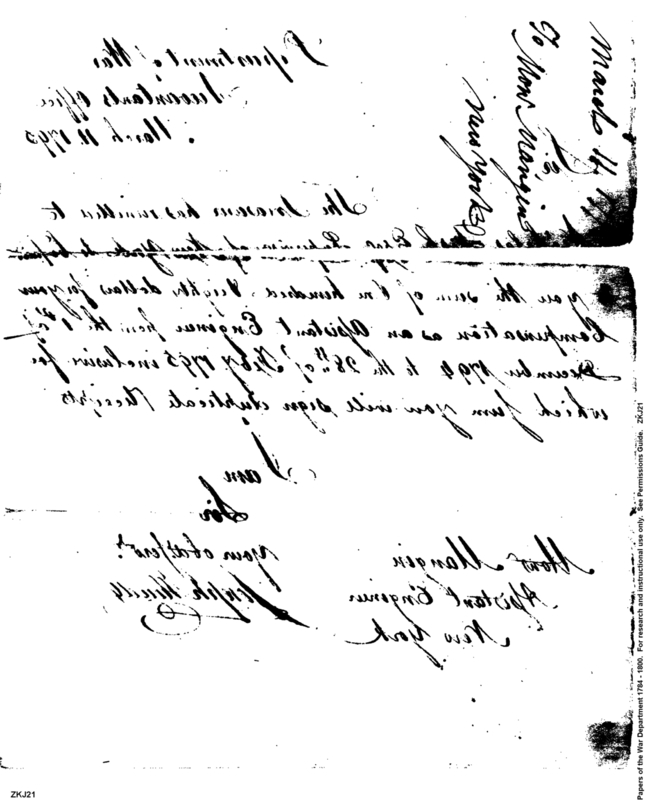 Department of War
Accountants Office
March 11. 1795
The Treasurer has remitted to
Esqr New York to
you the sum of One hundred Eighty dollars for your
Compensation as an Assistant Engineer from the 1st of
December 1794 to the 28th of Feby 1795 inclusive for
which sum you will sign duplicate Receipts
I am
Sir
your obdt servt
Joseph Howell
Monsr Mangin
Assistant Engineer
New York
March
To Monsr Mangin
New York
Papers of the War Department 1784 - 1800. For research and instructional use only. See Permissions Guide. ZKJ21
ZKJ21